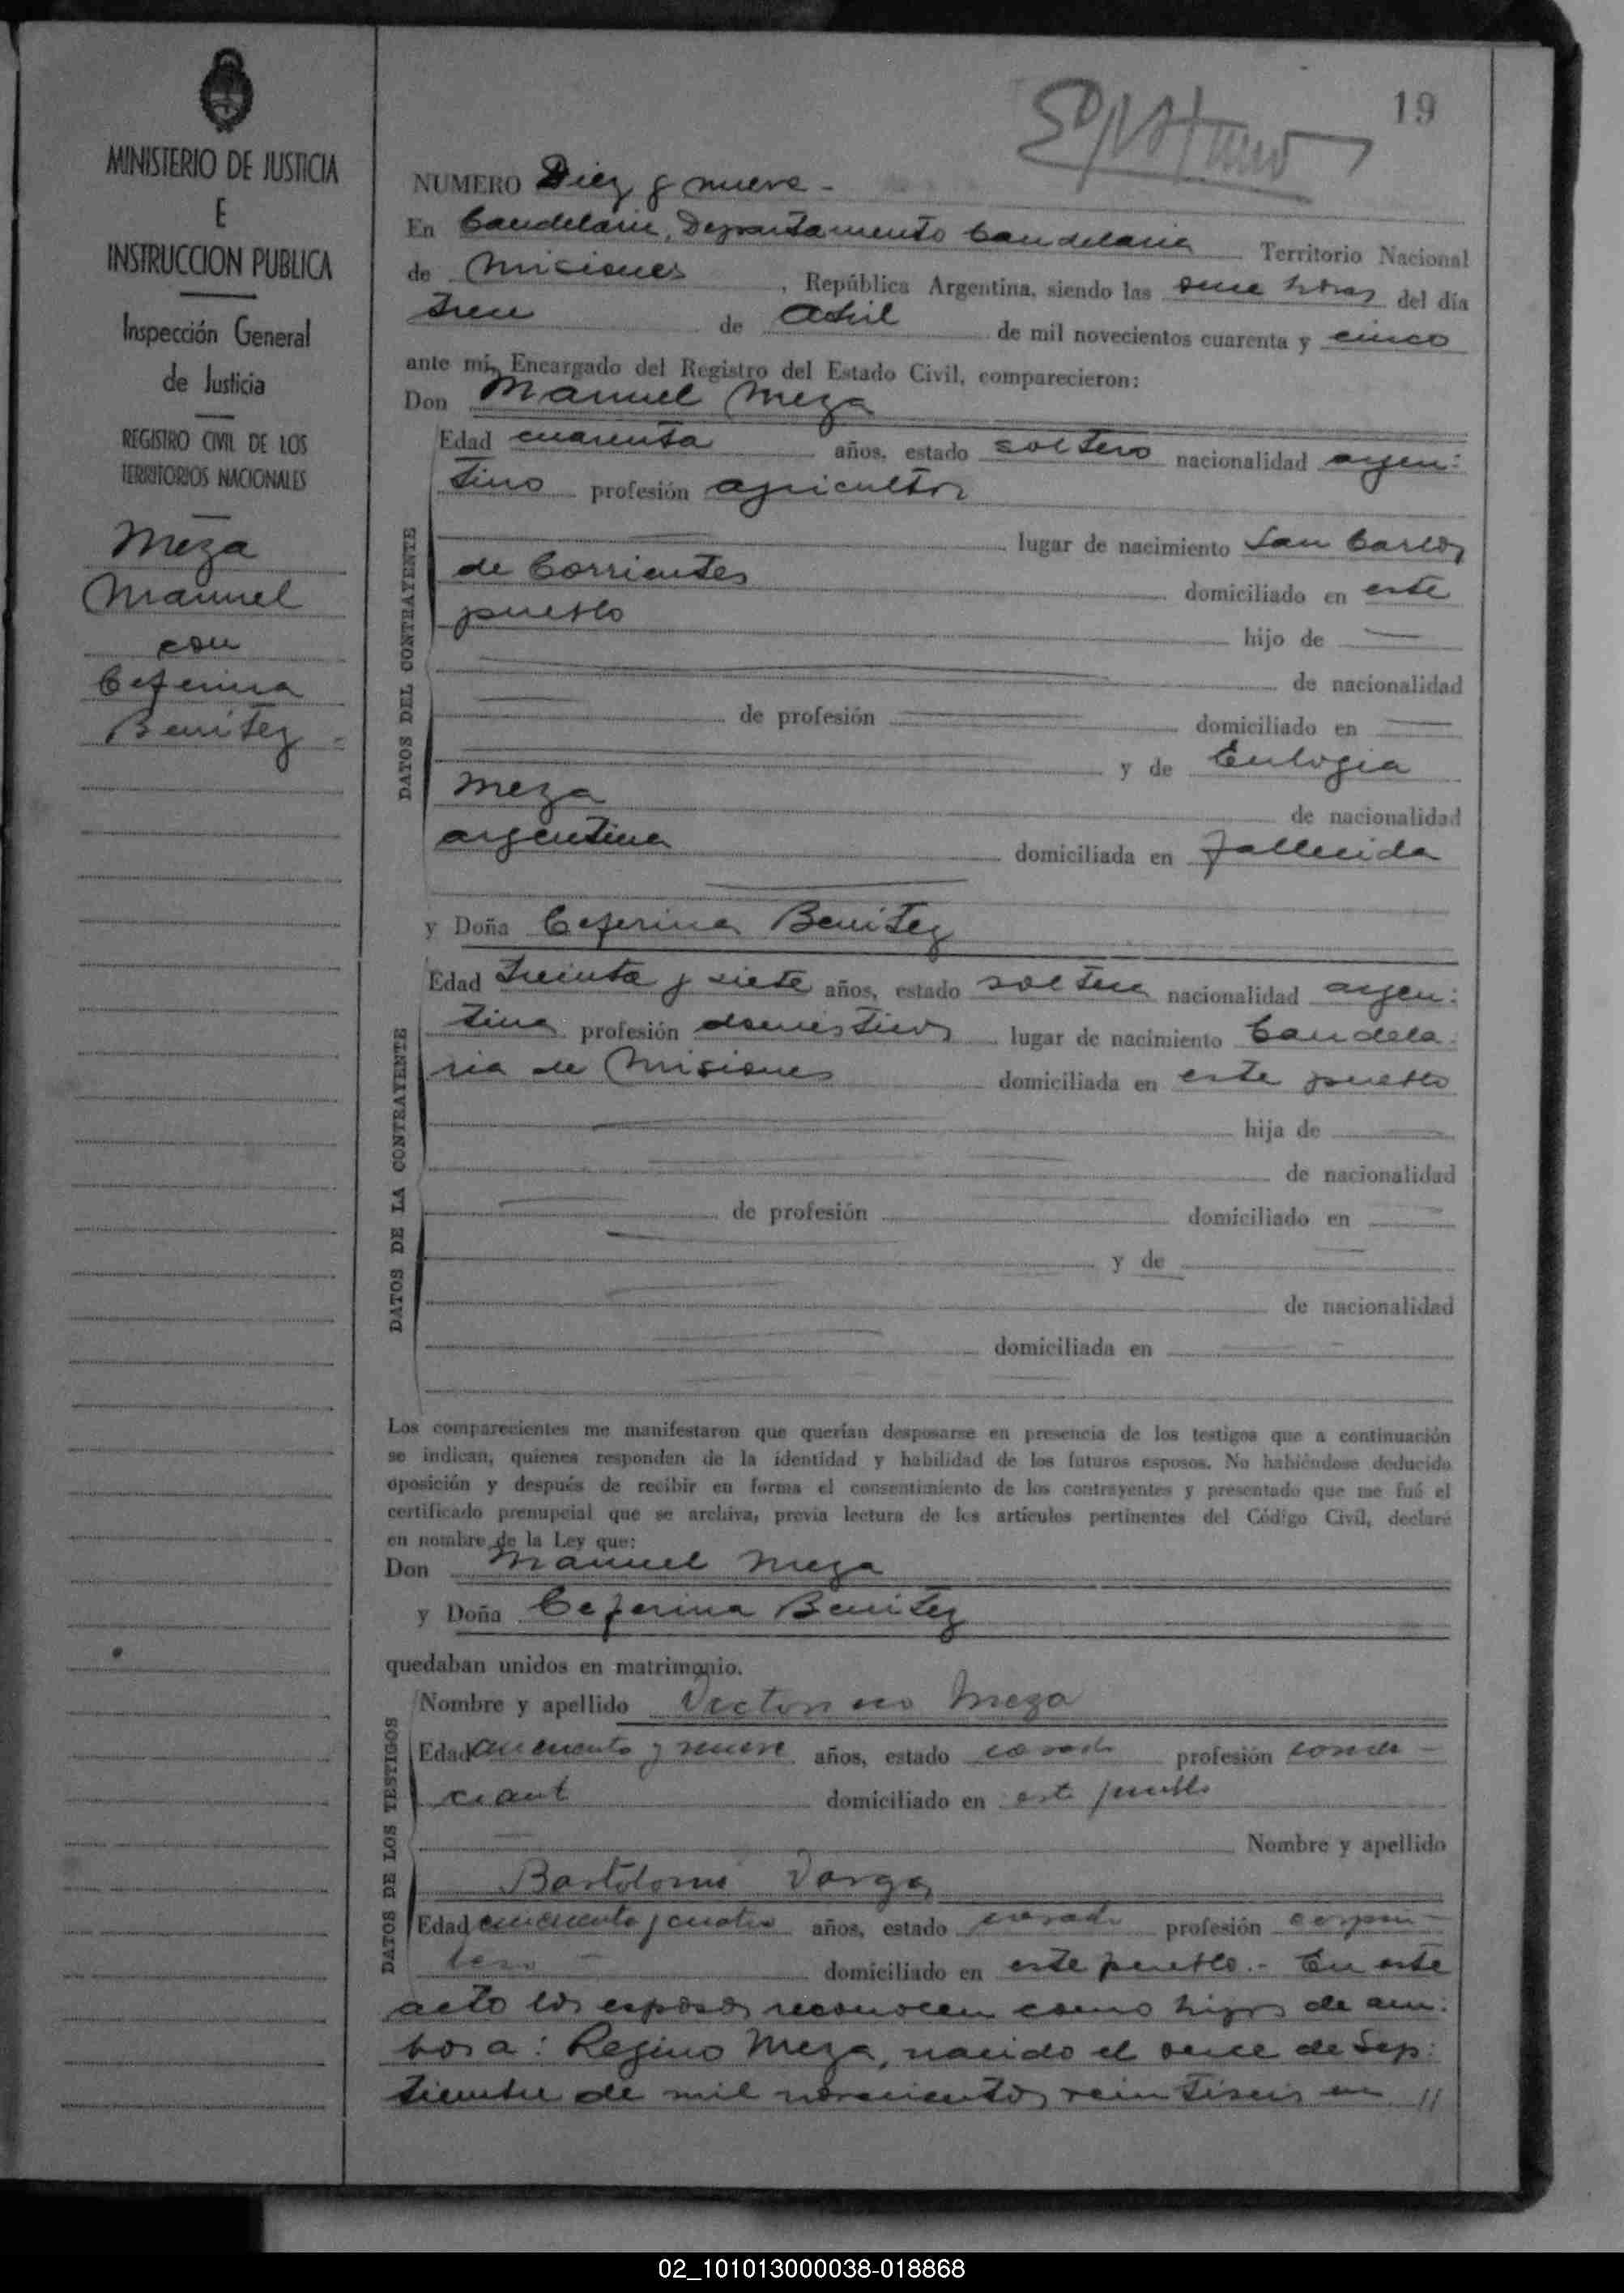 MINISTERIO DE JUSTICIA
E
INSTRUCCION PUBLICA
Inspección General
de Justicia
REGISTRO CIVIL DE LOS
TERRITORIOS NACIONALES
Meza
Manuel
con
Ceferina
Benitez
19
NUMERO Diez y nueve -
En Candelaria, Departamento Candelaria Territorio Nacional
de Misiones, República Argentina, siendo las once horas del día
trece de Abril de mil novecientos cuarenta y cinco
ante mí, Encargado del Registro del Estado Civil, comparecieron:
Don Manuel Meza
Edad cuarenta años, estado soltero nacionalidad argen:
tino profesión agricultor
lugar de nacimiento San Carlos
de Corrientes domiciliado en este
pueblo hijo de
de nacionalidad
de profesión domiciliado en
y de Eulogia
Meza de nacionalidad
argentina domiciliada en fallecida
y Doña Ceferina Benitez
Edad treinta y siete años, estado soltera nacionalidad argen:
tina profesión domésticos lugar de nacimiento Candela
ria de Misiones domiciliada en este pueblo
hija de
de nacionalidad
de profesión domiciliado en
y de
de nacionalidad
domiciliada en
DATOS DEL CONTRAYENTE
DATOS DE LA CONTRAYENTE
Los comparecientes me manifestaron que querían desposarse en presencia de los testigos que a continuación
se indican, quienes responden de la identidad y habilidad de los futuros esposos. No habiéndose deducido
oposición y después de recibir en forma el consentimiento de los contrayentes y presentado que me fué el
certificado prenupcial que se archiva, previa lectura de los artículos pertinentes del Código Civil, declaré
en nombre de la Ley que:
Don Manuel Meza
y Doña Ceferina Benitez
quedaban unidos en matrimonio.
DATOS DE LOS TESTIGOS
Nombre y apellido Victoriano Meza
Edad cincuenta y nueve años, estado casado profesión comer-
ciante domiciliado en este pueblo
Nombre y apellido
Bartolomé Varga
Edad cincuenta y cuatro años, estado casado profesión carpin-
tero - domiciliado en este pueblo.- En este
acto los esposos reconocen como hijos de am:
bos a: Regino Meza, nacido el once de Sep:
tiembre de mil novecientos veintiseis en //
02_101013000038-018868